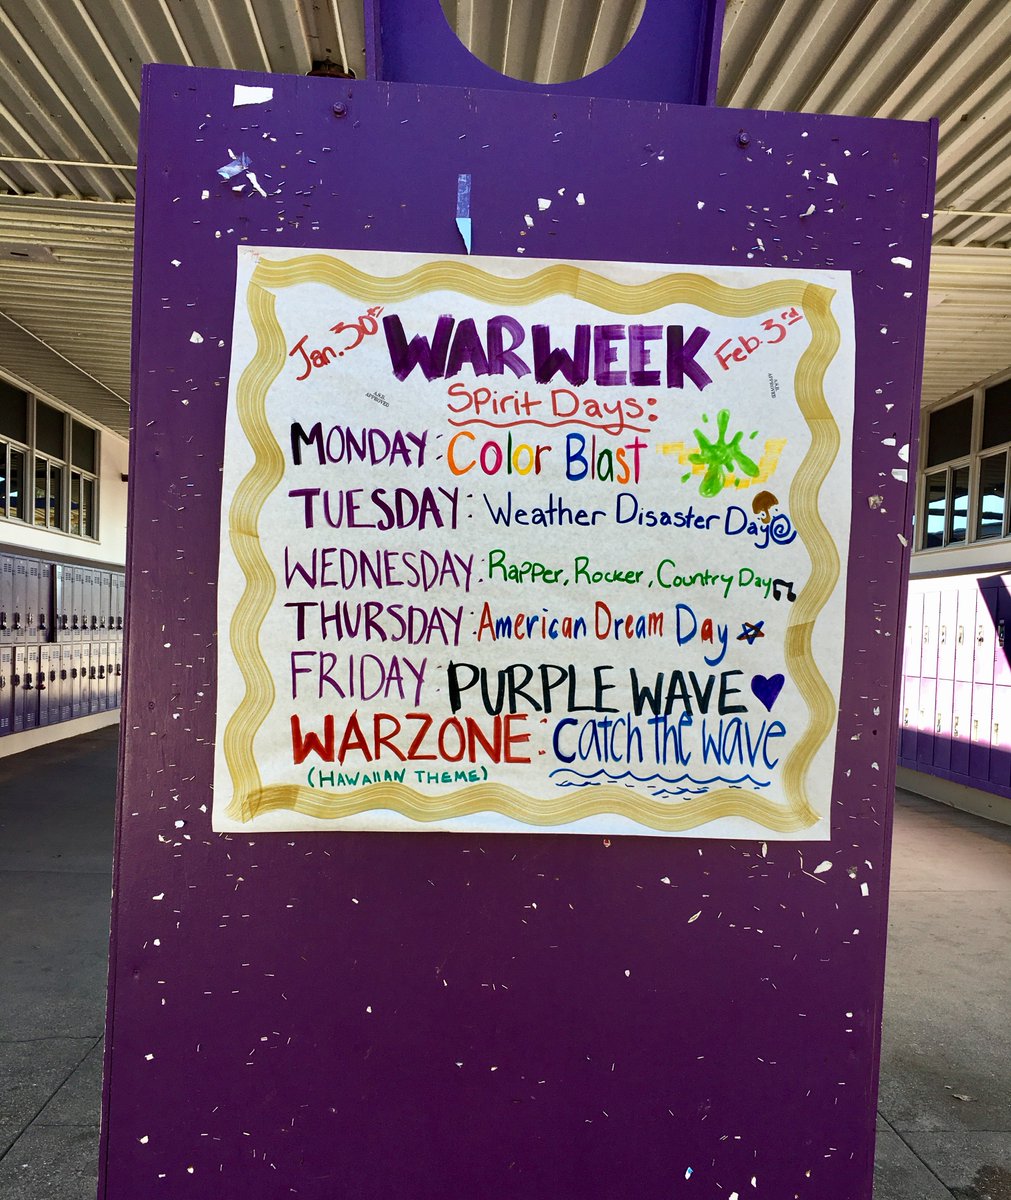 Jan. 30th WAR WEEK Feb. 3rd
A.S.B. APPROVED
A.S.B. APPROVED
Spirit Days:
MONDAY: Color Blast
TUESDAY: Weather Disaster Day
WEDNESDAY: Rapper, Rocker, Country Day
THURSDAY: American Dream Day
FRIDAY: PURPLE WAVE
WARZONE: Catch the wave
(HAWAIIAN THEME)